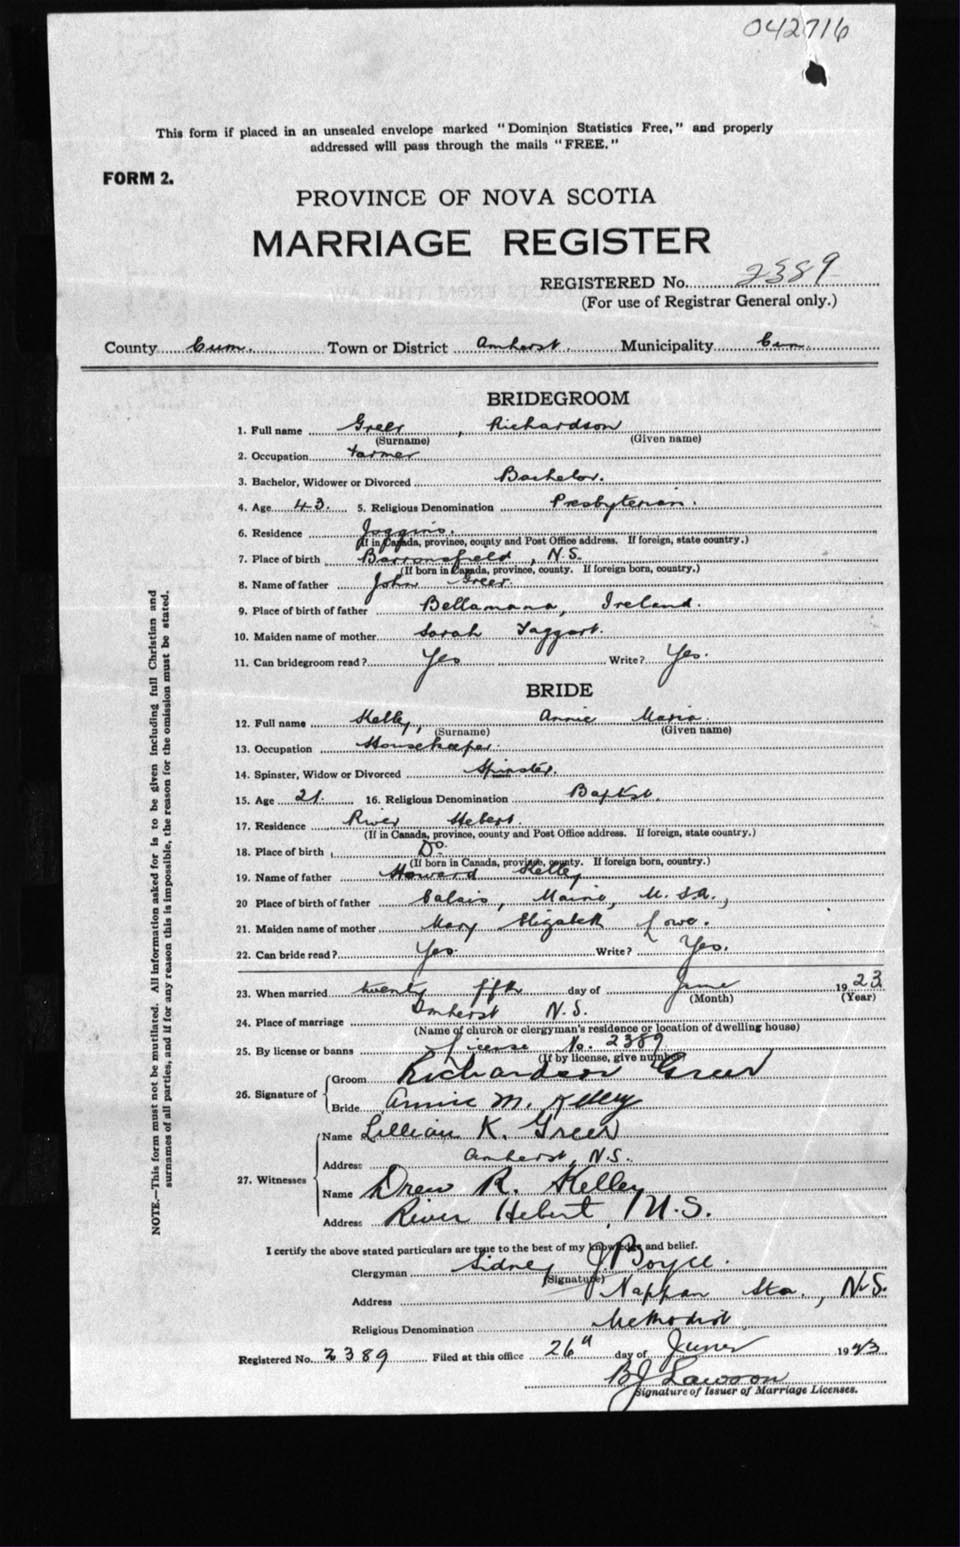 042716
This form if placed in an unsealed envelope marked "Dominion Statistics Free," and properly
addressed will pass through the mails "FREE."
FORM 2.
PROVINCE OF NOVA SCOTIA
MARRIAGE REGISTER
REGISTERED No. 2389
(For use of Registrar General only.)
County Cum. Town or District Amherst. Municipality Cum
BRIDEGROOM
1. Full name Greer, Richardson
(Surname) (Given name)
2. Occupation Farmer
3. Bachelor, Widower or Divorced Bachelor.
4. Age 43. 5. Religious Denomination Presbyterian.
6. Residence Joggins.
(If in Canada, province, county and Post Office address. If foreign, state country.)
7. Place of birth Barronsfield, N.S.
(If born in Canada, province, county. If foreign born, country.)
8. Name of father John Greer.
9. Place of birth of father Bellamana, Ireland.
10. Maiden name of mother Sarah Taggart.
11. Can bridegroom read? Yes Write? Yes.
BRIDE
12. Full name Kelley, Annie Maria.
(Surname) (Given name)
13. Occupation Housekeeper.
14. Spinster, Widow or Divorced Spinster.
15. Age 21. 16. Religious Denomination Baptist.
17. Residence River Hebert.
(If in Canada, province, county and Post Office address. If foreign, state country.)
18. Place of birth Do.
(If born in Canada, province, county. If foreign born, country.)
19. Name of father Howard Kelley
20 Place of birth of father Calais, Maine, U.S.A.,
21. Maiden name of mother Mary Elizabeth Lowe.
22. Can bride read? Yes Write? Yes.
23. When married twenty fifth day of June 1923
(Month) (Year)
24. Place of marriage Amherst N.S.
(Name of church or clergyman's residence or location of dwelling house)
25. By license or banns License No. 2389
(If by license, give number)
26. Signature of Groom Richardson Greer
Bride Annie M. Kelley
27. Witnesses Name Lillian K. Greer
Address Amherst, N.S.
Name Drew R. Kelley
Address River Hebert, N.S.
I certify the above stated particulars are true to the best of my knowledge and belief.
Clergyman Sidney J. Boyce.
(Signature)
Address Nappan Sta., N.S.
Religious Denomination Methodist
Registered No. 2389 Filed at this office 26th day of June 1923
BJ Lawson
Signature of Issuer of Marriage Licenses.
NOTE.—This form must not be mutilated. All information asked for is to be given including full Christian and
surnames of all parties, and if for any reason this is impossible, the reason for the omission must be stated.